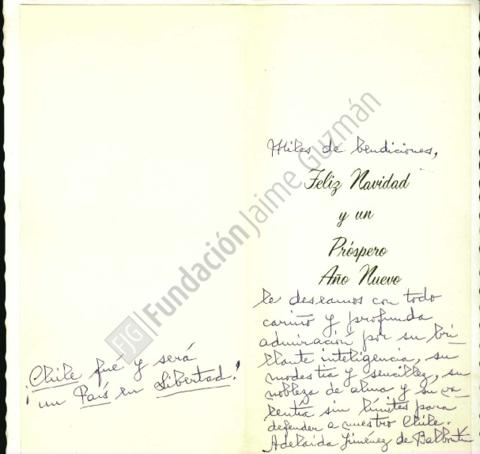 Miles de bendiciones,
Feliz Navidad
y un
Próspero
Año Nuevo
le deseamos con todo
cariño y profunda
admiración por su bri-
llante inteligencia, su
modestia y sencillez, su
nobleza de alma y su va-
lentía sin límites para
defender a nuestro Chile.
Adelaida Jiménez de
¡Chile fué y será
un País en Libertad!
FJG Fundación Jaime Guzmán